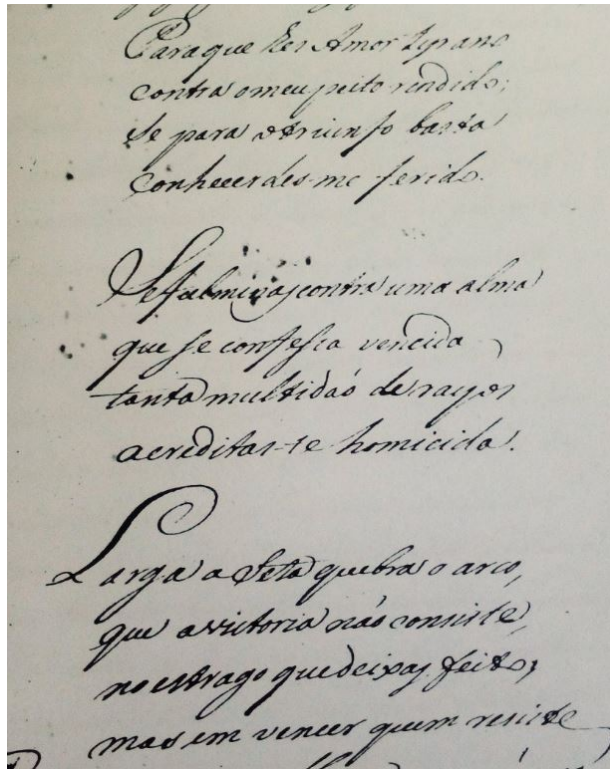 Para que hes Amor tyrano
contra o meu peito rendido;
se para o triunfo basta
conhecerdes-me ferido.
Se fulminas contra uma alma
que se confessa vencida
tanta multidaó de rayos
acreditas-te homicida.
Larga a Seta quebra o arco,
que a victoria não consiste,
no estrago que deixas feito,
mas em vencer quem resiste